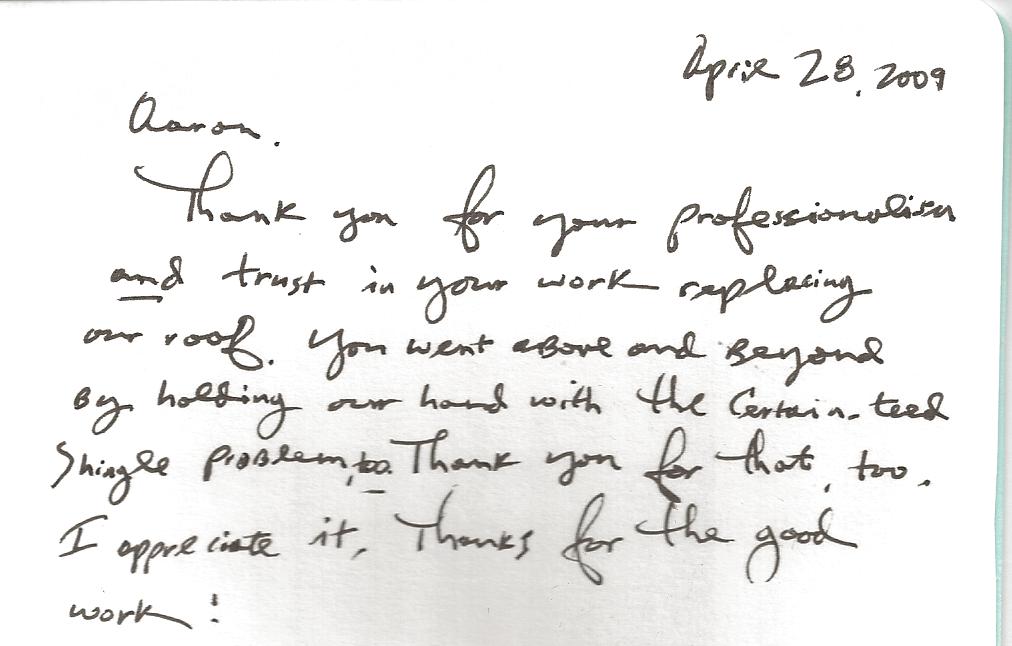 April 28, 2009
Aaron,
Thank you for your professionalism
and trust in your work replacing
our roof. You went above and Beyond
By holding our hand with the Certain-teed
Shingle problem, too. Thank you for that, too.
I appreciate it. Thanks for the good
work!